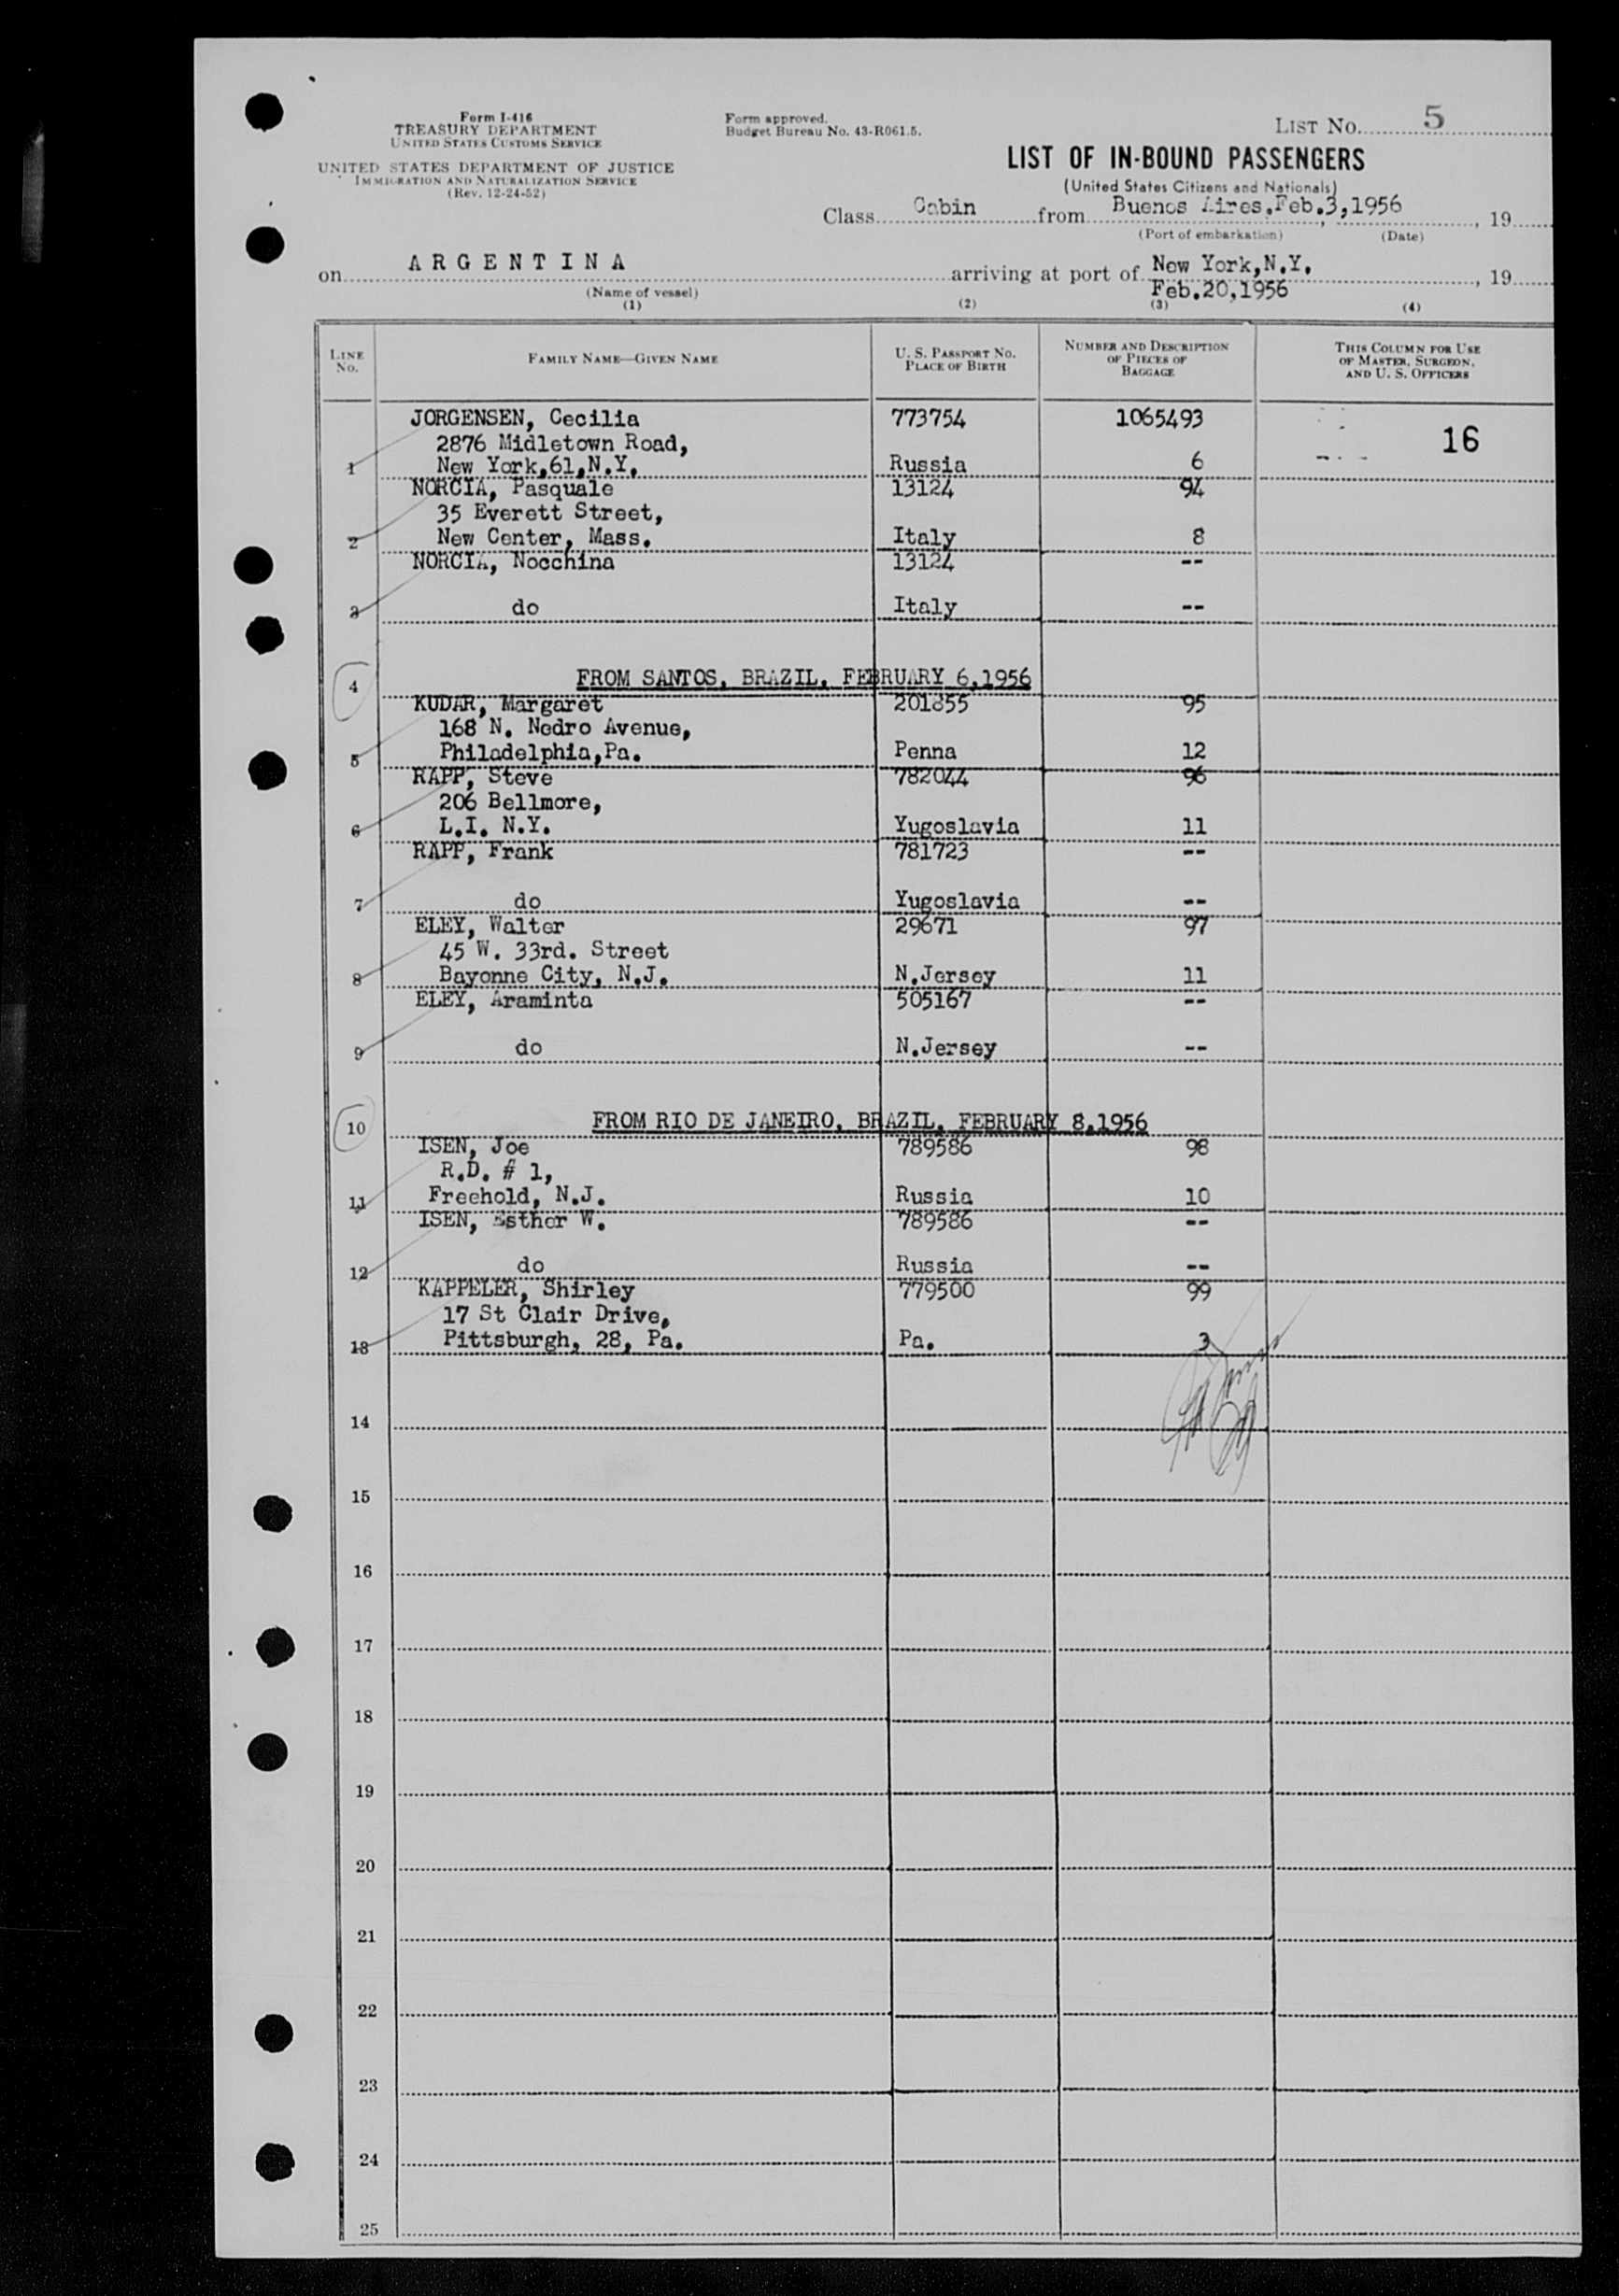 Form I-416
TREASURY DEPARTMENT
UNITED STATES CUSTOMS SERVICE
UNITED STATES DEPARTMENT OF JUSTICE
IMMIGRATION AND NATURALIZATION SERVICE
(Rev. 12-24-52)
Form approved.
Budget Bureau No. 43-R061.5.
LIST No. 5
LIST OF IN-BOUND PASSENGERS
(United States Citizens and Nationals)
Class Cabin from Buenos Aires,Feb.3,1956, 19
(Port of embarkation) (Date)
on ARGENTINA arriving at port of New York,N.Y. , 19
(Name of vessel) Feb.20,1956
(1) (2) (3) (4)
LINE No. FAMILY NAME—GIVEN NAME U. S. PASSPORT No. PLACE OF BIRTH NUMBER AND DESCRIPTION OF PIECES OF BAGGAGE THIS COLUMN FOR USE OF MASTER, SURGEON, AND U. S. OFFICERS
JORGENSEN, Cecilia 773754 1065493
2876 Midletown Road, 16
1 New York,61,N.Y. Russia 6
NORCIA, Pasquale 13124 94
35 Everett Street,
2 New Center, Mass. Italy 8
NORCIA, Nocchina 13124 --
3 do Italy --
4 FROM SANTOS, BRAZIL, FEBRUARY 6,1956
KUDAR, Margaret 201855 95
168 N. Nedro Avenue,
5 Philadelphia,Pa. Penna 12
RAPP, Steve 782044 96
206 Bellmore,
6 L.I. N.Y. Yugoslavia 11
RAPP, Frank 781723 --
7 do Yugoslavia --
ELEY, Walter 29671 97
45 W. 33rd. Street
8 Bayonne City, N.J. N.Jersey 11
ELEY, Araminta 505167 --
9 do N.Jersey --
10 FROM RIO DE JANEIRO, BRAZIL, FEBRUARY 8,1956
ISEN, Joe 789586 98
R.D. # 1,
11 Freehold, N.J. Russia 10
ISEN, Esther W. 789586 --
12 do Russia --
KAPPELER, Shirley 779500 99
17 St Clair Drive,
13 Pittsburgh, 28, Pa. Pa. 3
14
15
16
17
18
19
20
21
22
23
24
25